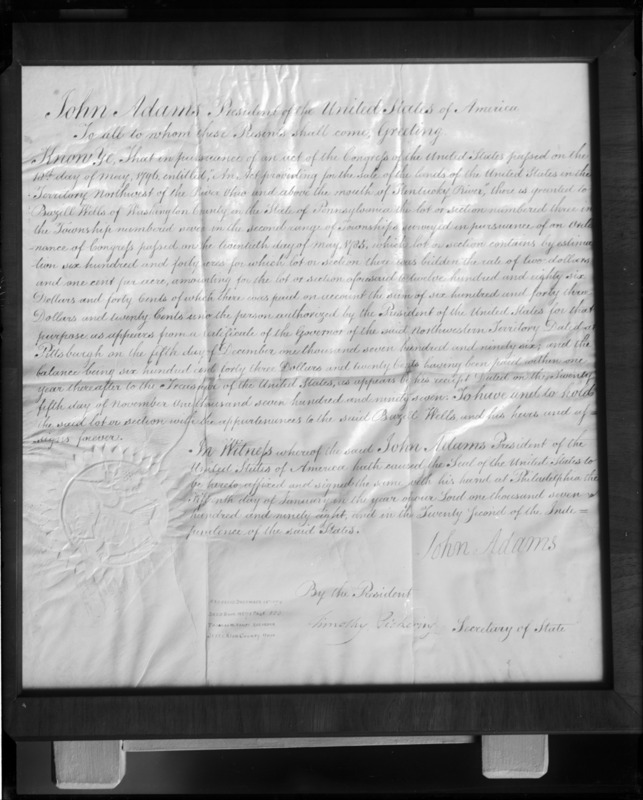 John Adams President of the United States of America
To all to whom these Presents shall come, Greeting
Know Ye, That in pursuance of an act of the Congress of the United States passed on the
day of May, 1796, entitled, "An Act providing for the sale of the Lands of the United States in the
Territory Northwest of the River Ohio and above the mouth of Kentucky River," there is granted to
Bazell Wells of Washington County in the State of Pennsylvania the lot or section numbered three in
the Township numbered in the second range of Townships surveyed in pursuance of an Ordi=
nance of Congress passed on the twentieth day of May, 1785, which lot or section contains by estima=
tion six hundred and forty acres for which lot or section there was bidden the rate of two dollars
and one cent per acre, amounting for the lot or section aforesaid to twelve hundred and eighty six
Dollars and forty Cents of which there was paid on account the sum of six hundred and forty three
Dollars and twenty Cents to the person authorized by the President of the United States for that
purpose as appears from a Certificate of the Governor of the said Northwestern Territory Dated at
Pittsburgh on the fifth day of December one thousand seven hundred and ninety six; and the
balance being six hundred and forty three Dollars and twenty Cents having been paid within one
year thereafter to the Treasurer of the United States, as appears by his receipt Dated on the Twenty
fifth day of November one thousand seven hundred and ninety seven. To have and to hold
the said lot or section with the appurtenances to the said Bazell Wells, and his heirs and as=
signs forever.
In Witness whereof the said John Adams President of the
United States of America hath caused the Seal of the United States to
be hereto affixed and signed the same with his hand at Philadelphia the
day of January in the year of our Lord one thousand seven
hundred and ninety eight, and in the Twenty Second of the Inde=
pendence of the said States.
John Adams
By the President
Timothy Pickering Secretary of State